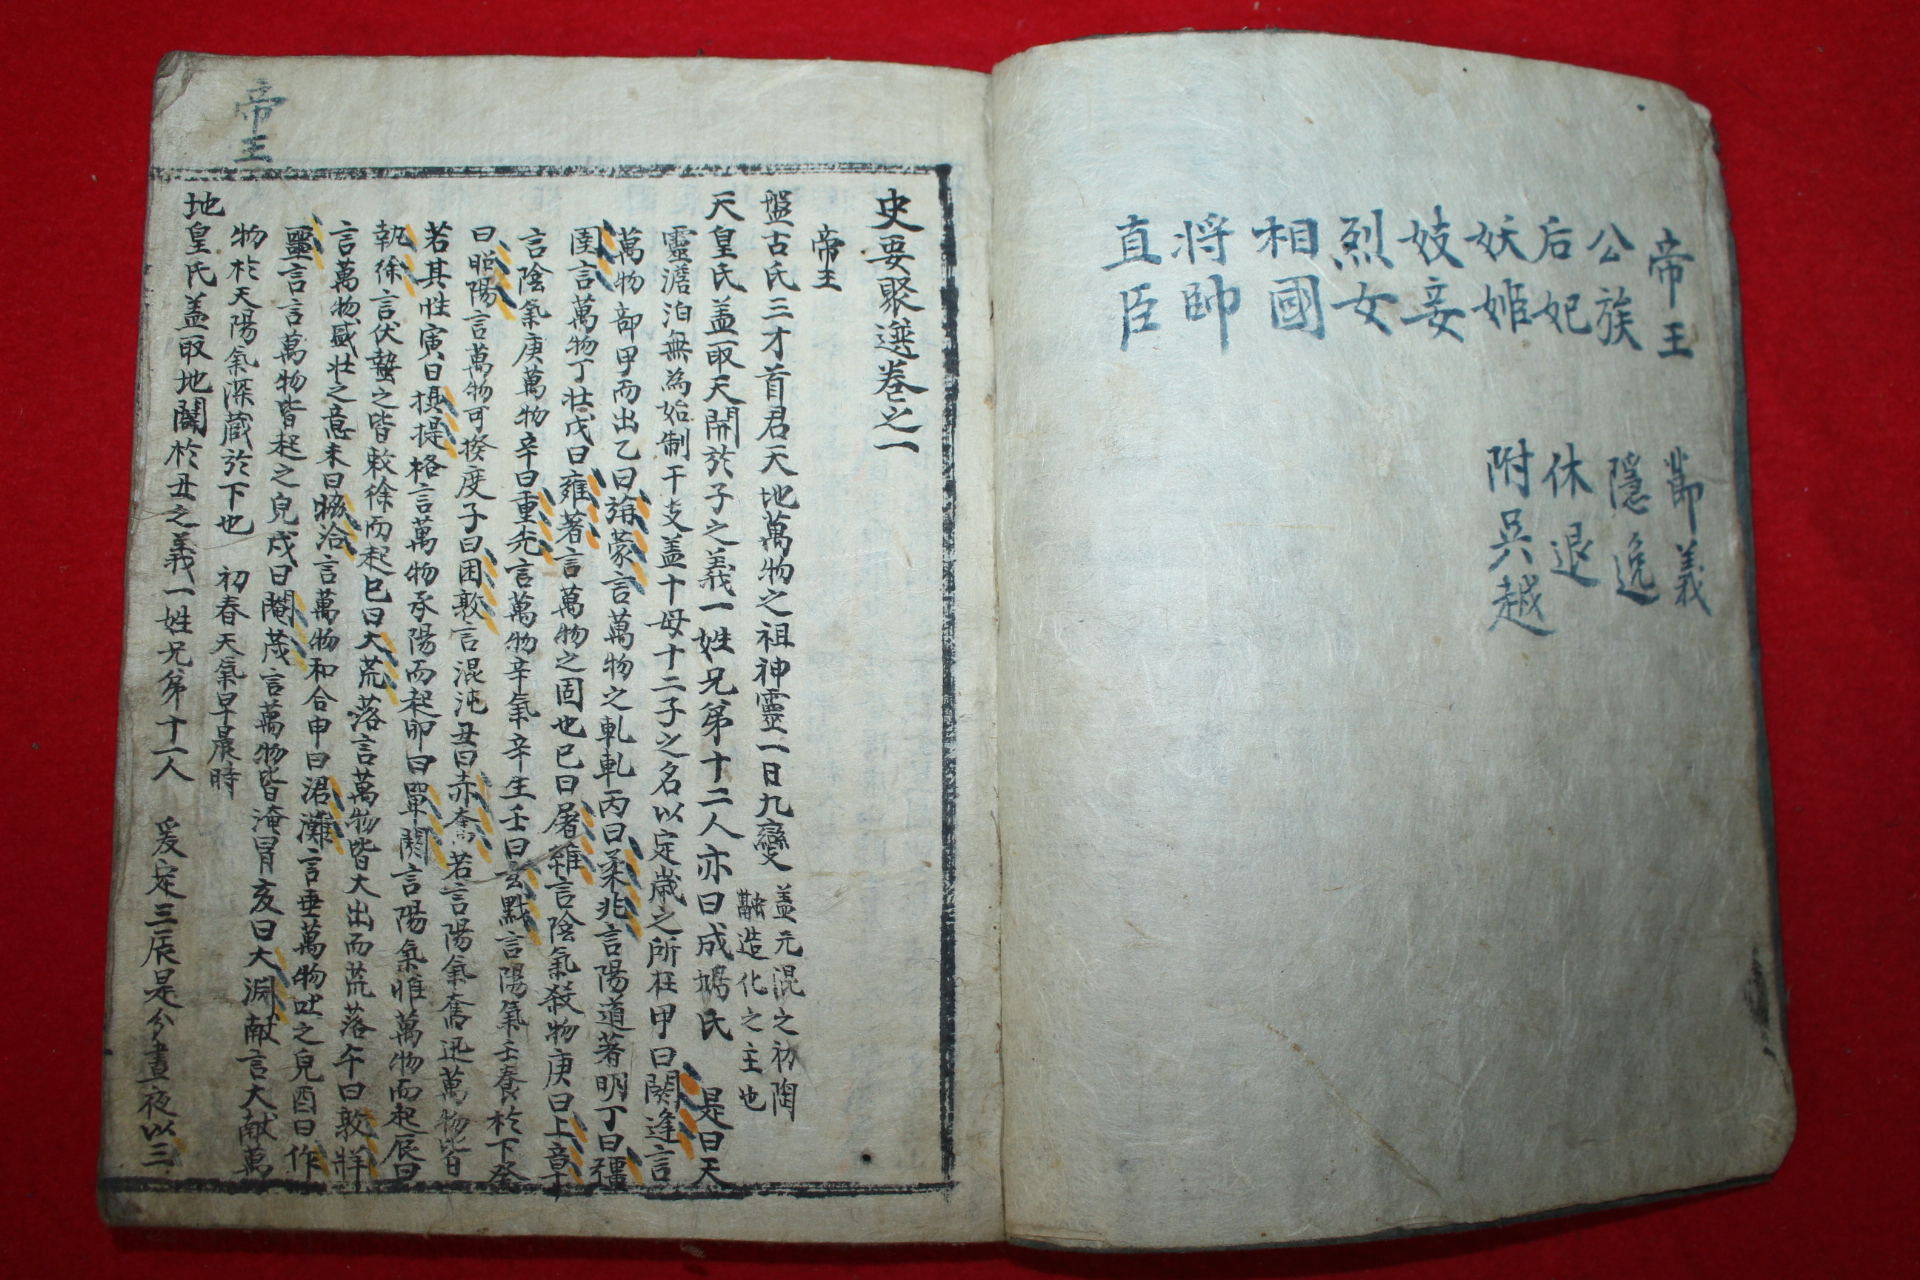 帝王
公族
后妃
妖姬
妓妾
烈女
相國
将帥
直臣
節義
隱逸
休退
附吳越
帝王
史要聚選卷之一
帝王
盤古氏三才首君天地萬物之祖神靈一日九變 盖元混之初陶
融造化之主也
天皇氏盖取天開於子之義一姓兄弟十二人亦曰成鳩氏 是曰天
靈澹泊無為始制干支盖十母十二子之名以定歲之所在甲曰閼逢言
萬物部甲而出乙曰旃蒙言萬物之軋軋丙曰柔兆言陽道著明丁曰彊
圉言萬物丁壮戊曰雍著言萬物之固也已曰屠維言陰氣殺物庚曰上章
言陰氣庚萬物辛曰重光言萬物辛氣辛生壬曰玄黓言陽氣壬養於下癸
曰昭陽言萬物可揆度子曰困敦言混沌丑曰赤奮若言陽氣奮迅萬物皆曰
若其性寅曰攝提格言萬物承陽而起卯曰單閼言陽氣惟萬物而起辰曰
執徐言伏蟄之皆敕徐而起巳曰大荒落言萬物皆大出而荒落午曰敦牂
言萬物盛壮之意未曰協洽言萬物和合申曰涒灘言垂萬物吐之皃酉曰作
噩言言萬物皆起之皃戌曰閹茂言萬物皆淹冒亥曰大淵献言大献萬
物於天陽氣深蔵於下也 初春天氣早晨時
地皇氏盖取地闢於丑之義一姓兄弟十一人 爰定三辰是分晝夜以三